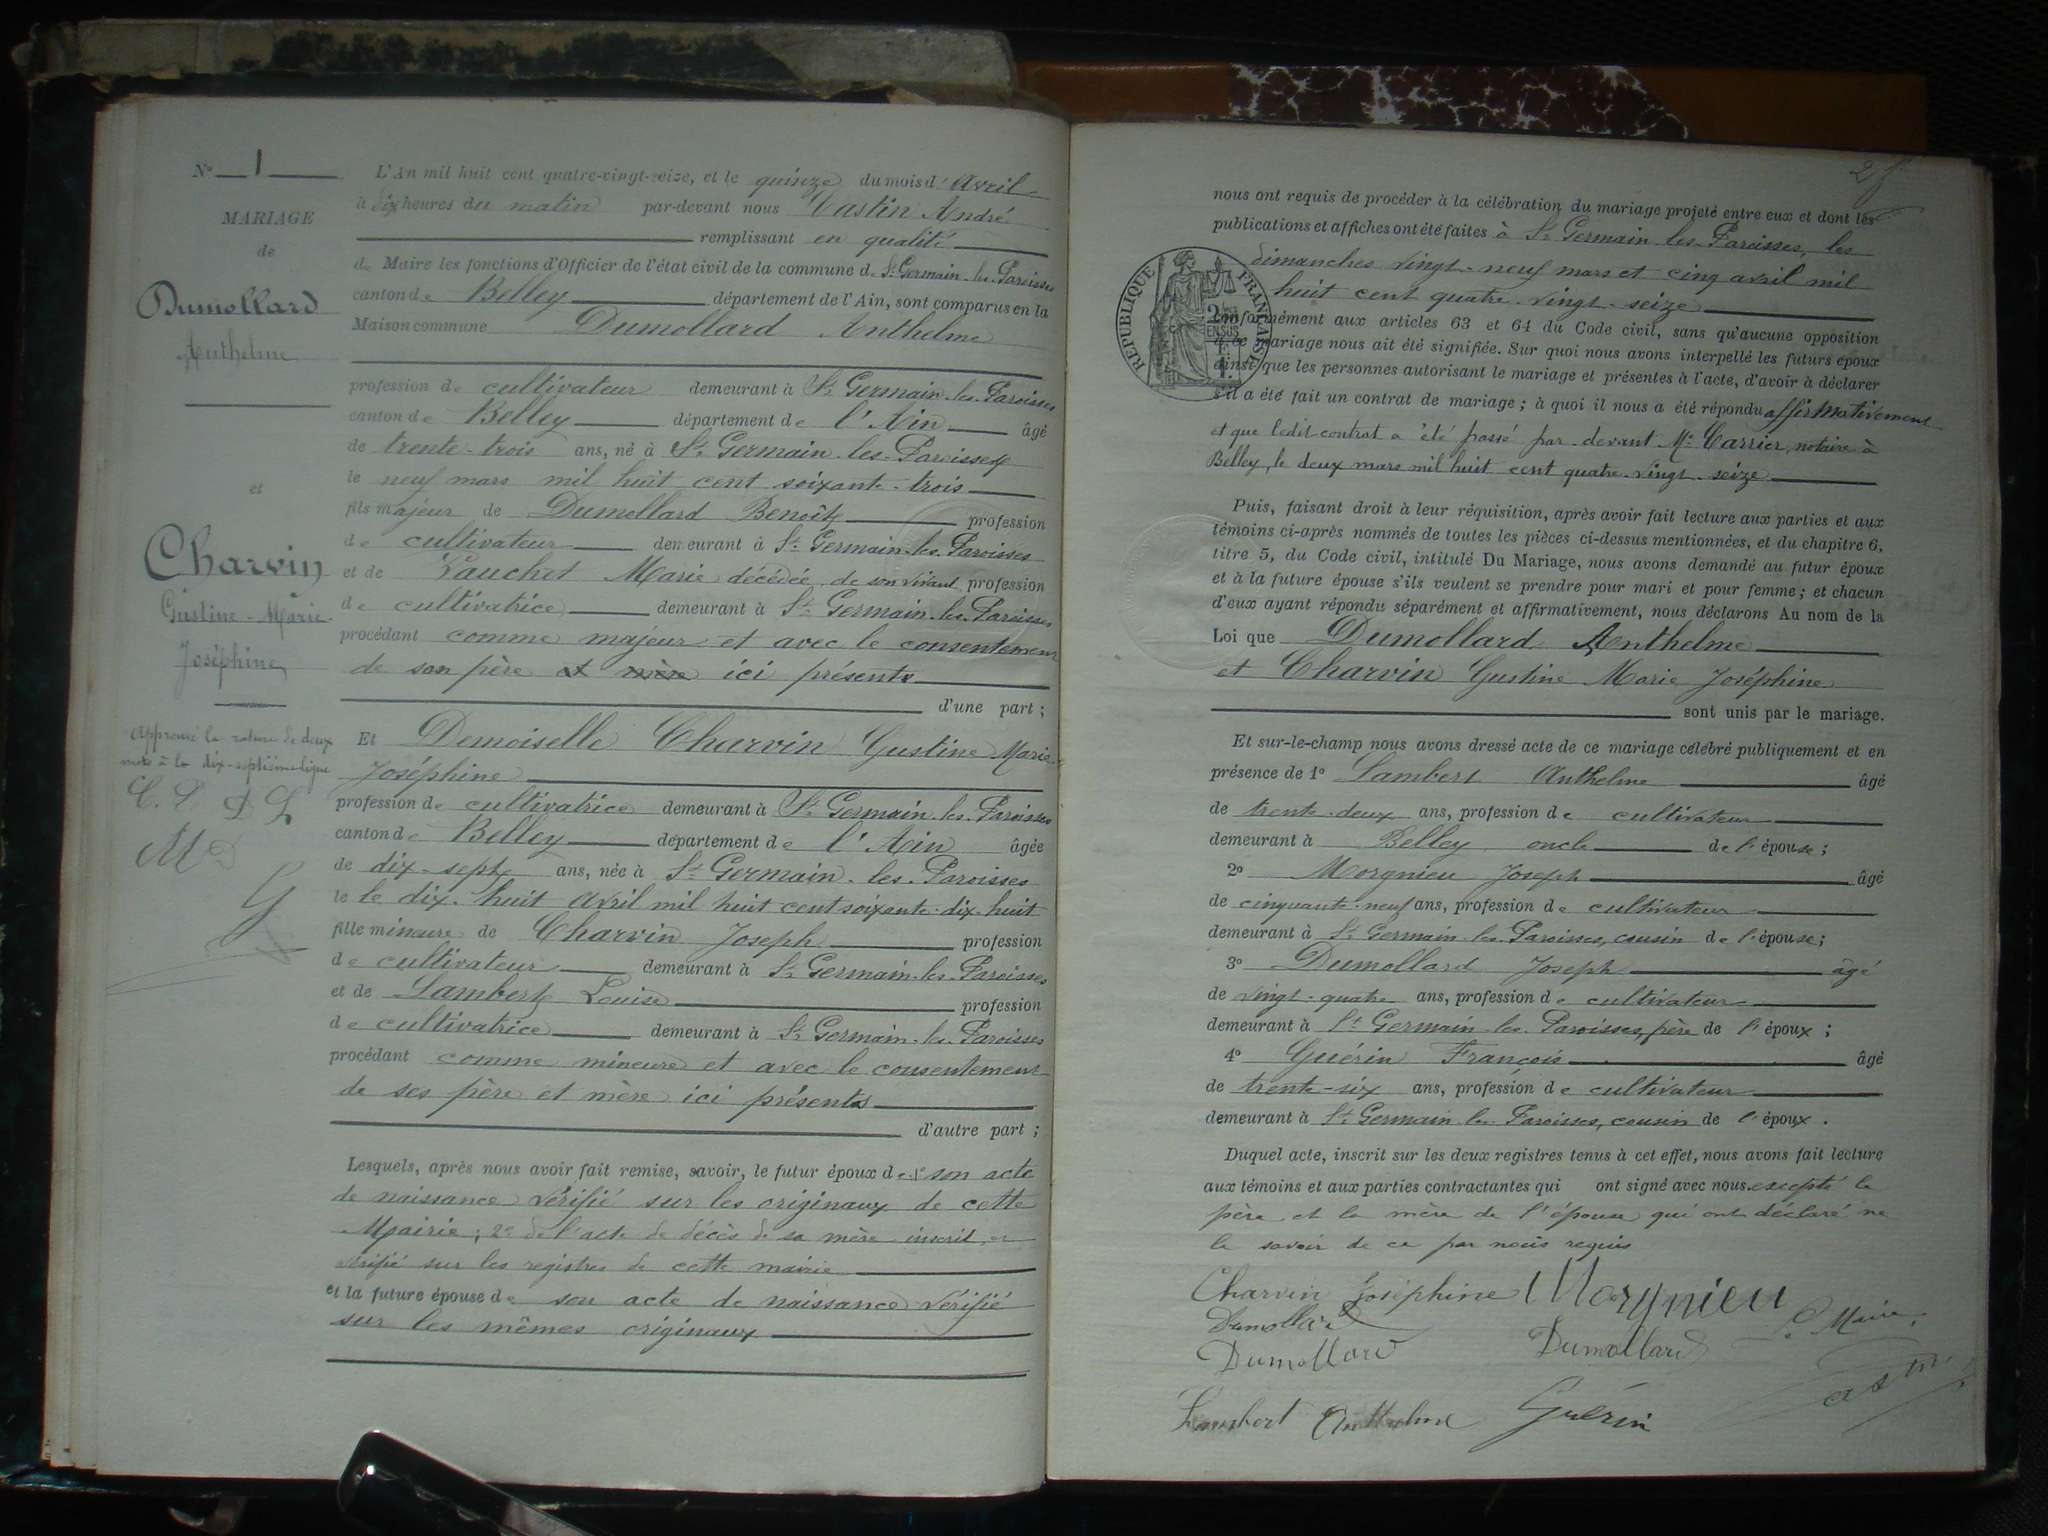 N° 1
MARIAGE
de
Dumollard
Anthelme
et
Charvin
Gustine-Marie-
Joséphine
Approuvé la rature de deux
mots à la dix-septième ligne
L'An mil huit cent quatre-vingt-seize, et le quinze du mois d'Avril
à dix heures du matin par-devant nous Castin André
remplissant en qualité
de Maire les fonctions d'Officier de l'état civil de la commune de St Germain-les-Paroisses
canton de Belley département de l'Ain, sont comparus en la
Maison commune Dumollard Anthelme
profession de cultivateur demeurant à St Germain-les-Paroisses
canton de Belley département de l'Ain âgé
de trente-trois ans, né à St Germain-les-Paroisses
le neuf mars mil huit cent soixante-trois
fils majeur de Dumollard Benoît profession
de cultivateur demeurant à St Germain-les-Paroisses
et de Marie décédée, de son vivant profession
de cultivatrice demeurant à St Germain-les-Paroisses
procédant comme majeur et avec le consentement
de son père et mère ici présents
d'une part ;
Et Demoiselle Charvin Gustine Marie-
Joséphine
profession de cultivatrice demeurant à St Germain-les-Paroisses
canton de Belley département de l'Ain âgée
de dix-sept ans, née à St Germain-les-Paroisses
le le dix-huit Avril mil huit cent soixante-dix-huit
fille mineure de Charvin Joseph profession
de cultivateur demeurant à St Germain-les-Paroisses
et de Lambert Louise profession
de cultivatrice demeurant à St Germain-les-Paroisses
procédant comme mineure et avec le consentement
de ses père et mère ici présents
d'autre part ;
Lesquels, après nous avoir fait remise, savoir, le futur époux de 1° son acte
de naissance vérifié sur les originaux de cette
Mairie ; 2° de l'acte de décès de sa mère inscrit et
vérifié sur les registres de cette mairie
et la future épouse de son acte de naissance vérifié
sur les mêmes originaux
nous ont requis de procéder à la célébration du mariage projeté entre eux et dont les
publications et affiches ont été faites à St Germain-les-Paroisses, les
dimanches vingt-neuf mars et cinq avril mil
huit cent quatre-vingt-seize
RÉPUBLIQUE FRANÇAISE
Conformément aux articles 63 et 64 du Code civil, sans qu'aucune opposition
à ce mariage nous ait été signifiée. Sur quoi nous avons interpellé les futurs époux
ainsi que les personnes autorisant le mariage et présentes à l'acte, d'avoir à déclarer
s'il a été fait un contrat de mariage ; à quoi il nous a été répondu affirmativement
et que ledit contrat a été passé par-devant Me Carrier, notaire à
Belley, le deux mars mil huit cent quatre-vingt-seize
Puis, faisant droit à leur réquisition, après avoir fait lecture aux parties et aux
témoins ci-après nommés de toutes les pièces ci-dessus mentionnées, et du chapitre 6,
titre 5, du Code civil, intitulé Du Mariage, nous avons demandé au futur époux
et à la future épouse s'ils veulent se prendre pour mari et pour femme ; et chacun
d'eux ayant répondu séparément et affirmativement, nous déclarons Au nom de la
Loi que Dumollard Anthelme
et Charvin Gustine Marie Joséphine
sont unis par le mariage.
Et sur-le-champ nous avons dressé acte de ce mariage célébré publiquement et en
présence de 1° Lambert Anthelme âgé
de trente-deux ans, profession de cultivateur
demeurant à Belley oncle de l'épouse ;
2° Morgnieu Joseph âgé
de cinquante-neuf ans, profession de cultivateur
demeurant à St Germain-les-Paroisses, cousin de l'épouse ;
3° Dumollard Joseph âgé
de vingt-quatre ans, profession de cultivateur
demeurant à St Germain-les-Paroisses, frère de l'époux ;
4° Guérin François âgé
de trente-six ans, profession de cultivateur
demeurant à St Germain-les-Paroisses, cousin de l'époux.
Duquel acte, inscrit sur les deux registres tenus à cet effet, nous avons fait lecture
aux témoins et aux parties contractantes qui ont signé avec nous excepté le
père et la mère de l'épouse qui ont déclaré ne
le savoir de ce par nous requis
Charvin Joséphine Morgnieu
Dumollard Le Maire,
Dumollard Dumollard
Lambert Anthelme Guérin